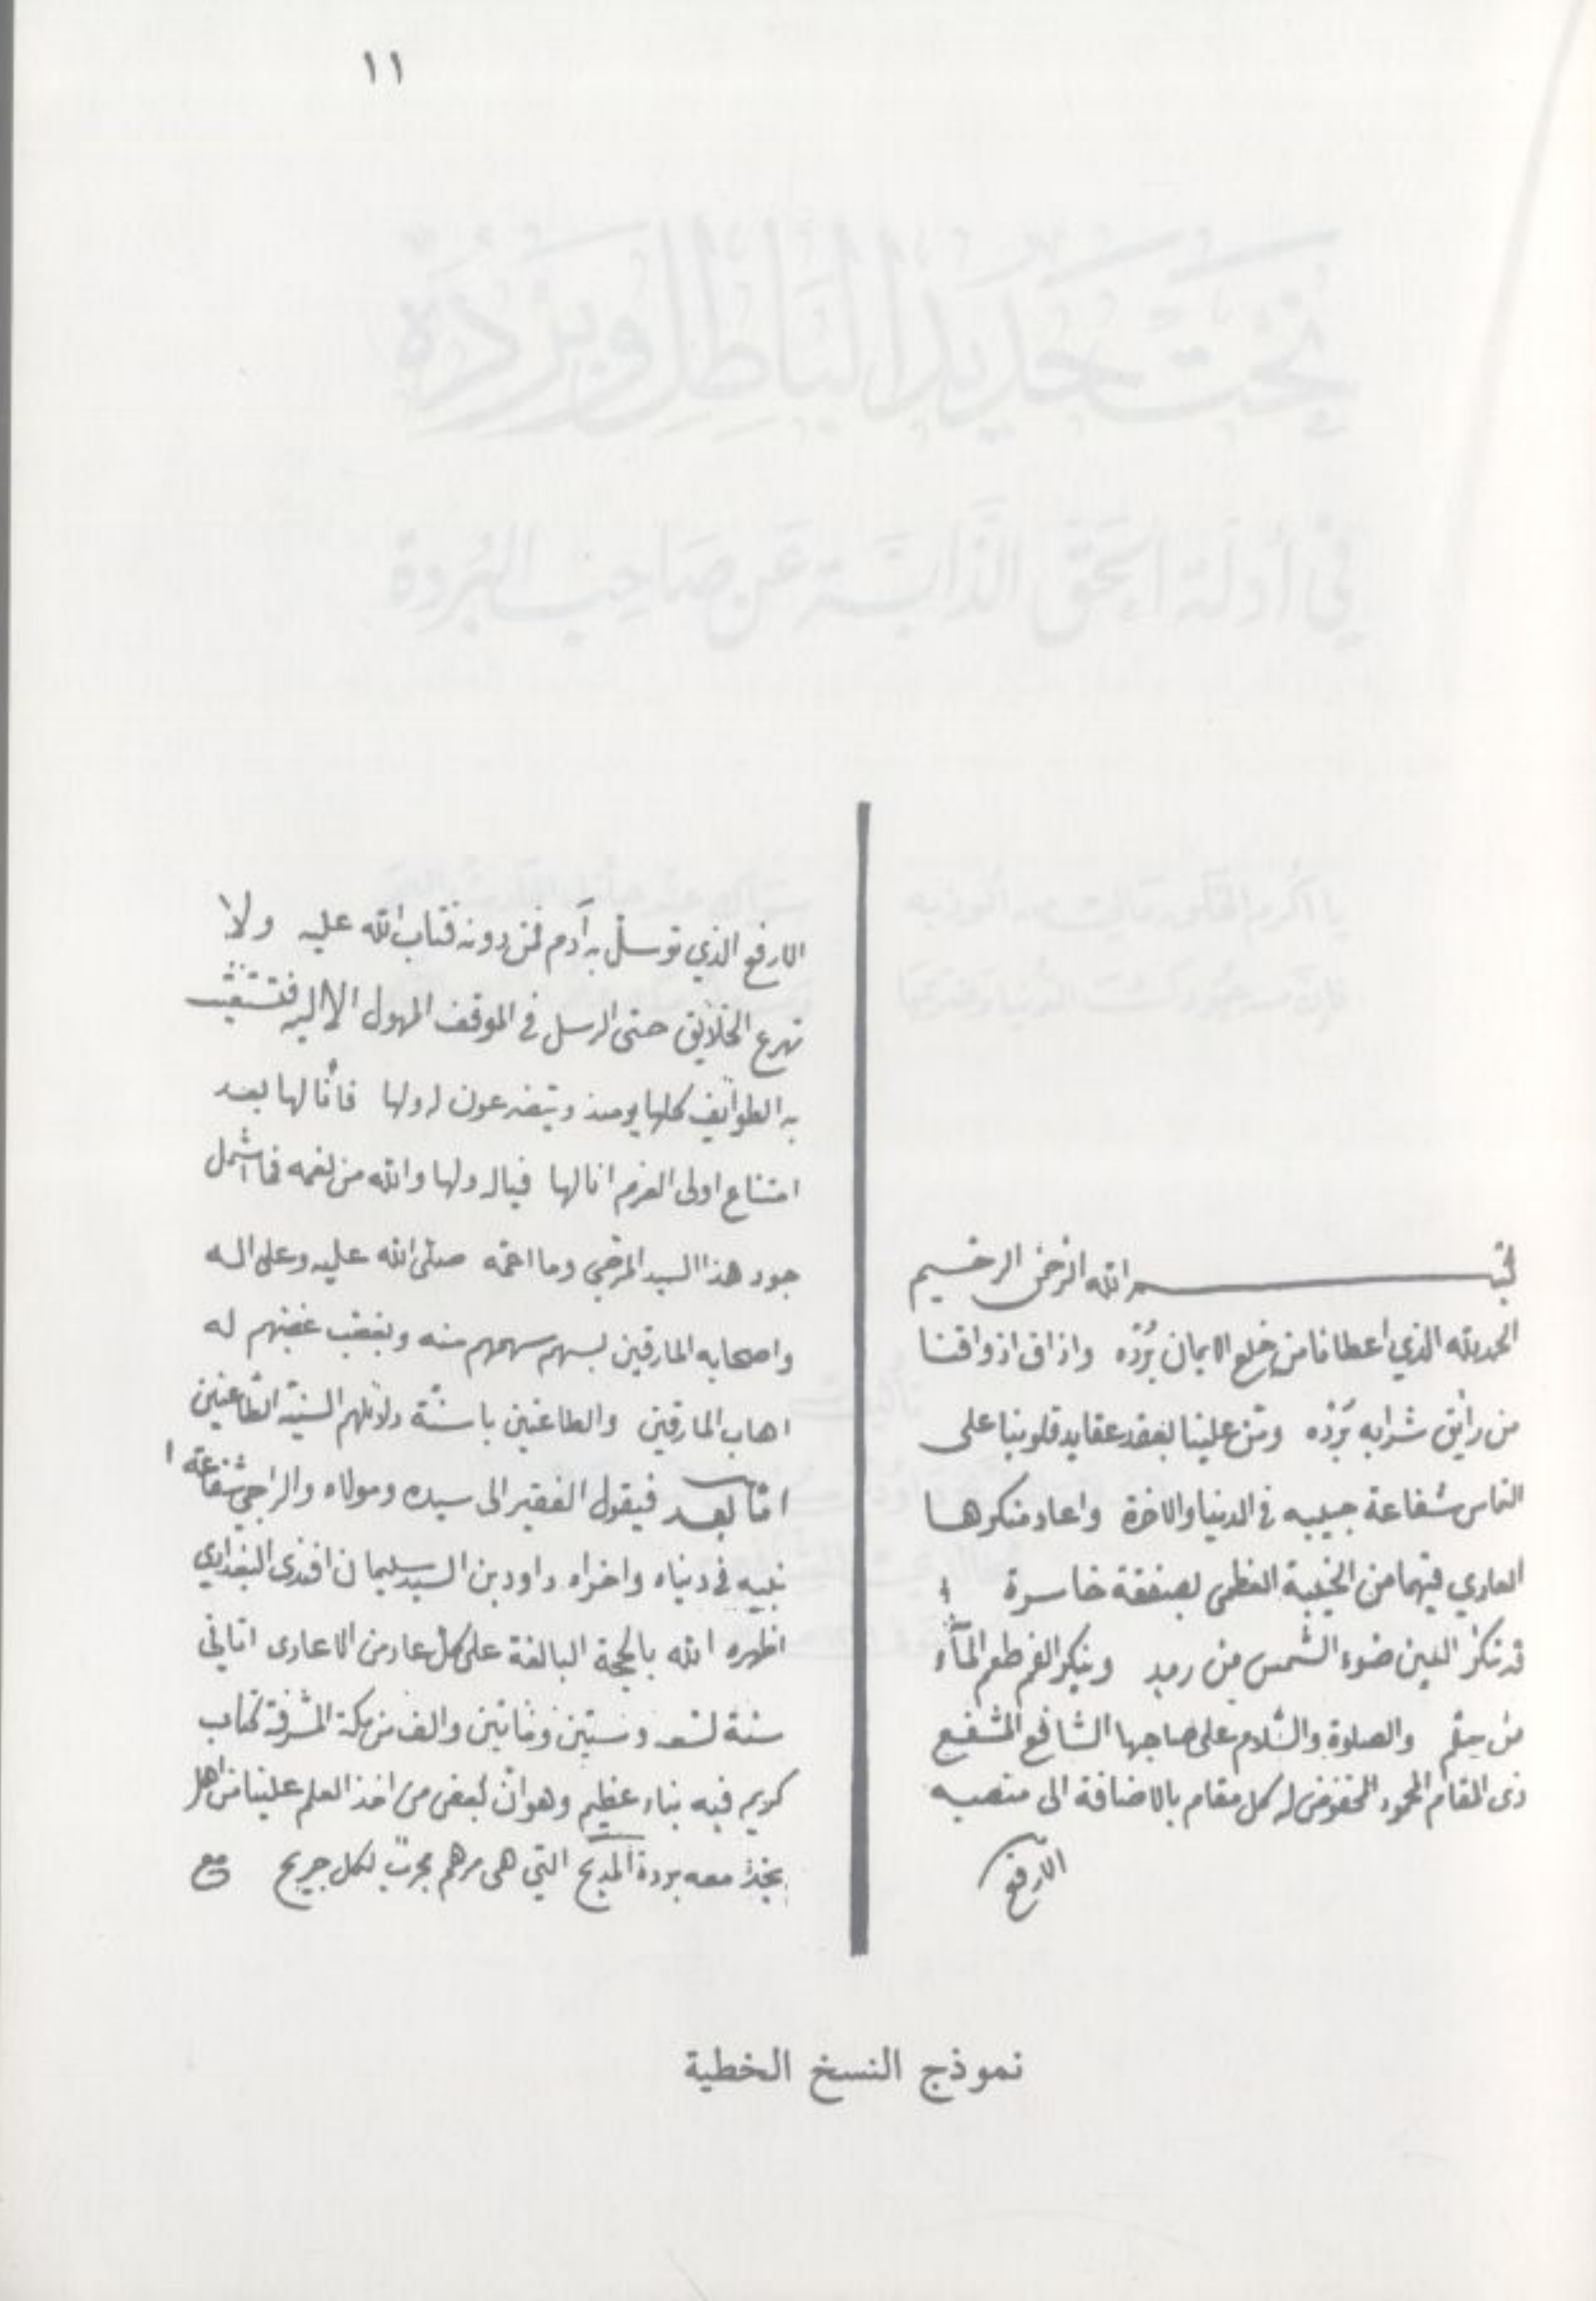 ١١
بسم الله الرحمن الرحيم
الحمد لله الذي اعطانا من خلع الايمان بُرْدَه واذاق اذواقنا
من رائق شرابه بَرْدَه ومَنّ علينا بعقد عقايد قلوبنا على
التماس شفاعة حبيبه في الدنيا والاخرة واعاد منكرها
العادي فيهما من الخيبة العظمى بصفقة خاسرة
قد تنكر العين ضوء الشمس من رمد وينكر الفم طعم المآء
من سقم والصلوة والسّلام على صاحبها الشافع المشفع
ذى المقام المحمود المخفوض له كل مقام بالاضافة الى منصبه
الارفع
الارفع الذي توسل به آدم فمن دونه فتاب الله عليه ولا
تهرع الخلائق حتى الرسل في الموقف المهول الا اليه فتستغيث
به الطوائف كلها يومئذ ويتضرعون له ولها فأنا لها بعد
امتناع اولى العزم انا لها فياله ولها والله من نعمه فما اشمل
جود هذا السيد المرتجي وما اعمّه صلى الله عليه وعلى اله
واصحابه المارقين بسهم سهمهم منه وبغضب غضبهم له
اهاب المارقين والطاعنين باسنّة دلائلهم السنيّه الطّاعنين
امّا بعد فيقول الفقير الى سيده ومولاه والراجي شفاعة
نبيه في دنياه واخراه داود بن السيد سليمان افندى البغدادي
اظهره الله بالحجة البالغة على كل عاد من الاعادى اتاني
سنة تسعه وستين ومائتين والف من مكة المشرفة كتاب
كريم فيه نباء عظيم وهو انّ بعض من اخذ العلم علينا من اهل
نجد معه بردة المديح التي هى مرهم مجربّ لكل جريح مع
نموذج النسخ الخطية